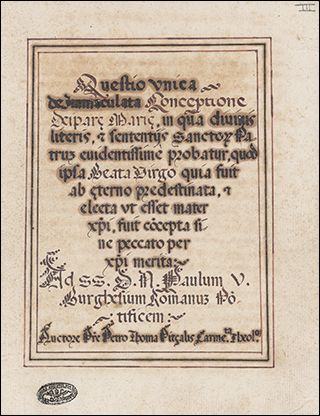 Questio vnica
de jmmaculata Conceptione
Deiparę Marię, in qua diuinis
literis, & sententijs Sanctorū Pa-
trum euidentissime probatur, quod
ipsa Beata Virgo quia fuit
ab ęterno predestinata, &
electa vt esset mater
xpi, fuit cōcepta si
ne peccato per
xpi merita:
Ad SS. D. N. Paulum V.
Burghesium Romanum Pō-
tificem:
Auctore Pre Petro Thoma Carme. Theol.